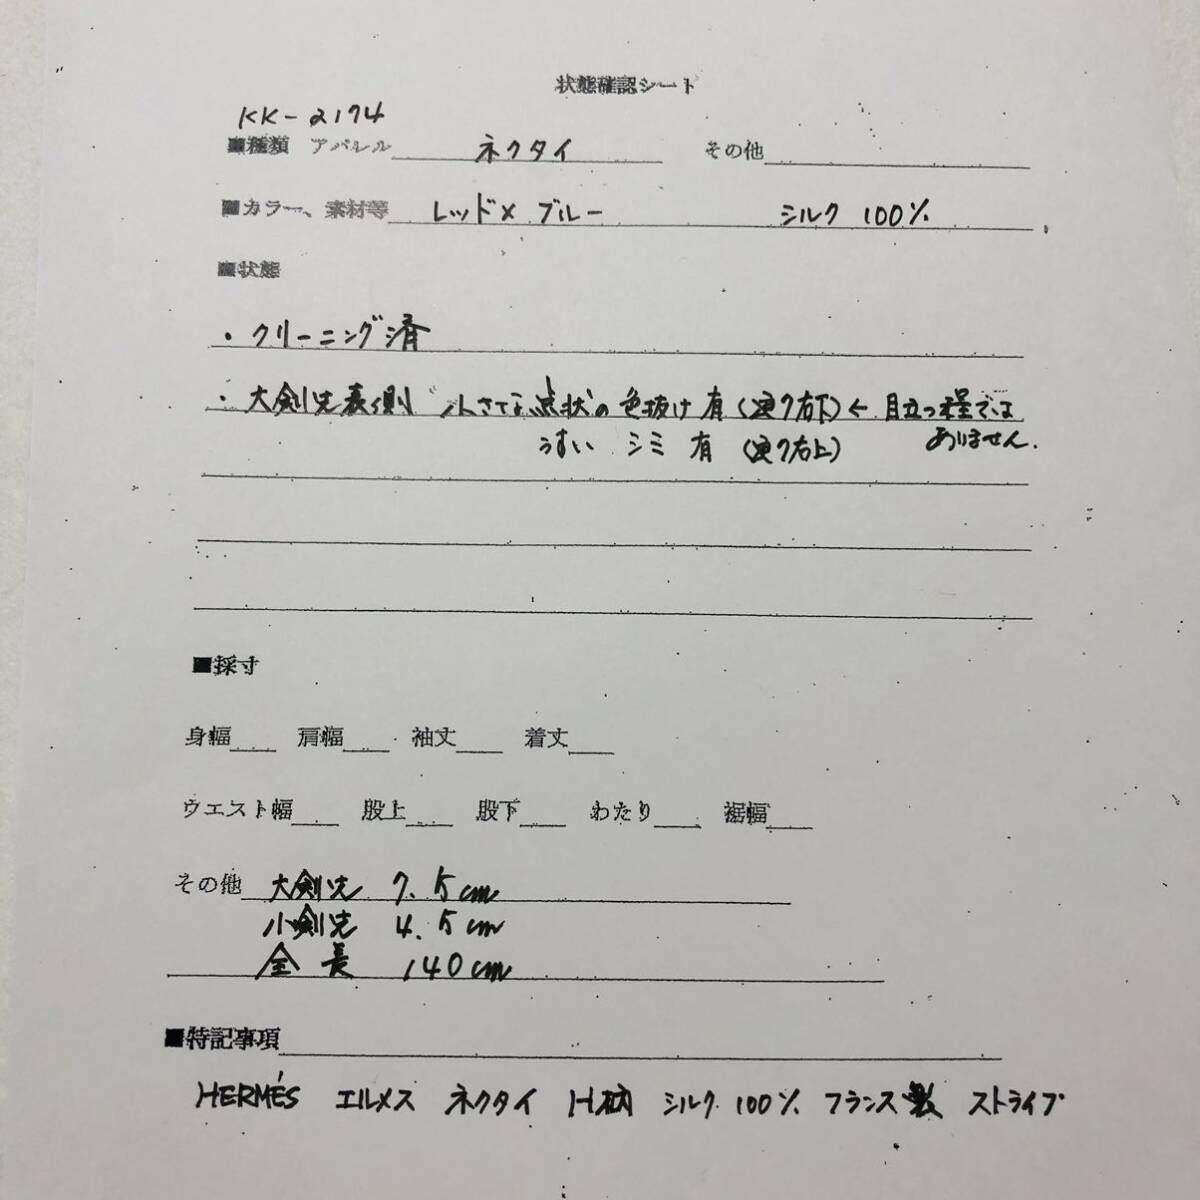 状態確認シート
KK-2174
■種類 アパレル ネクタイ その他
■カラー、素材等 レッド×ブルー シルク 100%
■状態
・クリーニング済
・大剣先表側 小さな点状の色抜け有(凍ク右下)← 目立つ程では
うすい シミ 有 (凍ク右上) ありません.
■採寸
身幅 肩幅 袖丈 着丈
ウエスト幅 股上 股下 わたり 裾幅
その他 大剣先 7.5cm
小剣先 4.5cm
全長 140cm
■特記事項
HERMÉS エルメス ネクタイ H柄 シルク 100% フランス製 ストライプ